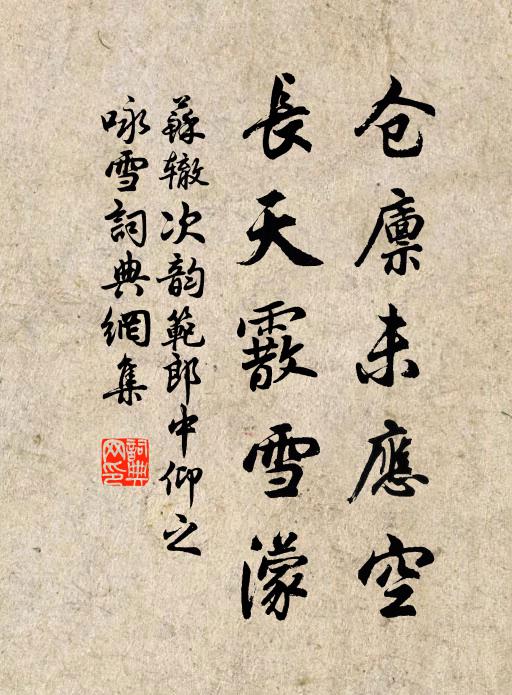 仓廪未應空
長天霰雪濛
蘇辙次韵範郎中仰之
咏雪詞典網集
詞典網印